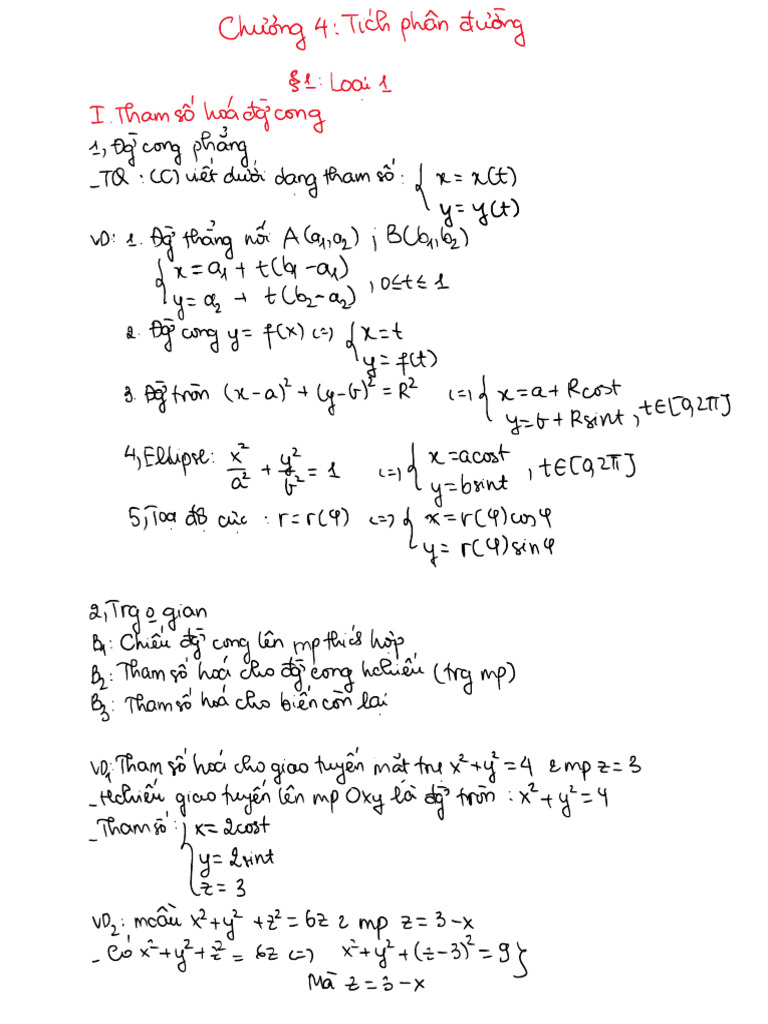 Chương 4: Tích phân đường
§1: Loại 1
I. Tham số hoá đg̀ cong
1, Đg̀ cong phẳng
_TQ: (C) viết dưới dạng tham số: { x = x(t)
y = y(t)
VD: 1. Đg̀ thẳng nối A(a₁,a₂) ; B(b₁,b₂)
{ x = a₁ + t(b₁ - a₁)
y = a₂ + t(b₂ - a₂) , 0≤t≤1
2. Đg̀ cong y = f(x) (=) { x = t
y = f(t)
3. Đg̀ tròn (x-a)² + (y-b)² = R² (=) { x = a + Rcost
y = b + Rsint, t∈[0,2π]
4, Ellipse: x²/a² + y²/b² = 1 (=) { x = acost
y = bsint , t∈[0,2π]
5, Toạ độ cực: r = r(φ) (=) { x = r(φ)cosφ
y = r(φ)sinφ
2, Trg o gian
B₁: Chiếu đg̀ cong lên mp thích hợp
B₂: Tham số hoá cho đg̀ cong hchiếu (trg mp)
B₃: Tham số hoá cho biến còn lại
VD₁: Tham số hoá cho giao tuyến mặt trụ x² + y² = 4 & mp z = 3
_Hchiếu giao tuyến lên mp Oxy là đg̀ tròn: x² + y² = 4
_Tham số: { x = 2cost
y = 2sint
z = 3
VD₂: mcầu x² + y² + z² = 6z & mp z = 3 - x
_Có x² + y² + z² = 6z (=) x² + y² + (z - 3)² = 9 }
Mà z = 3 - x